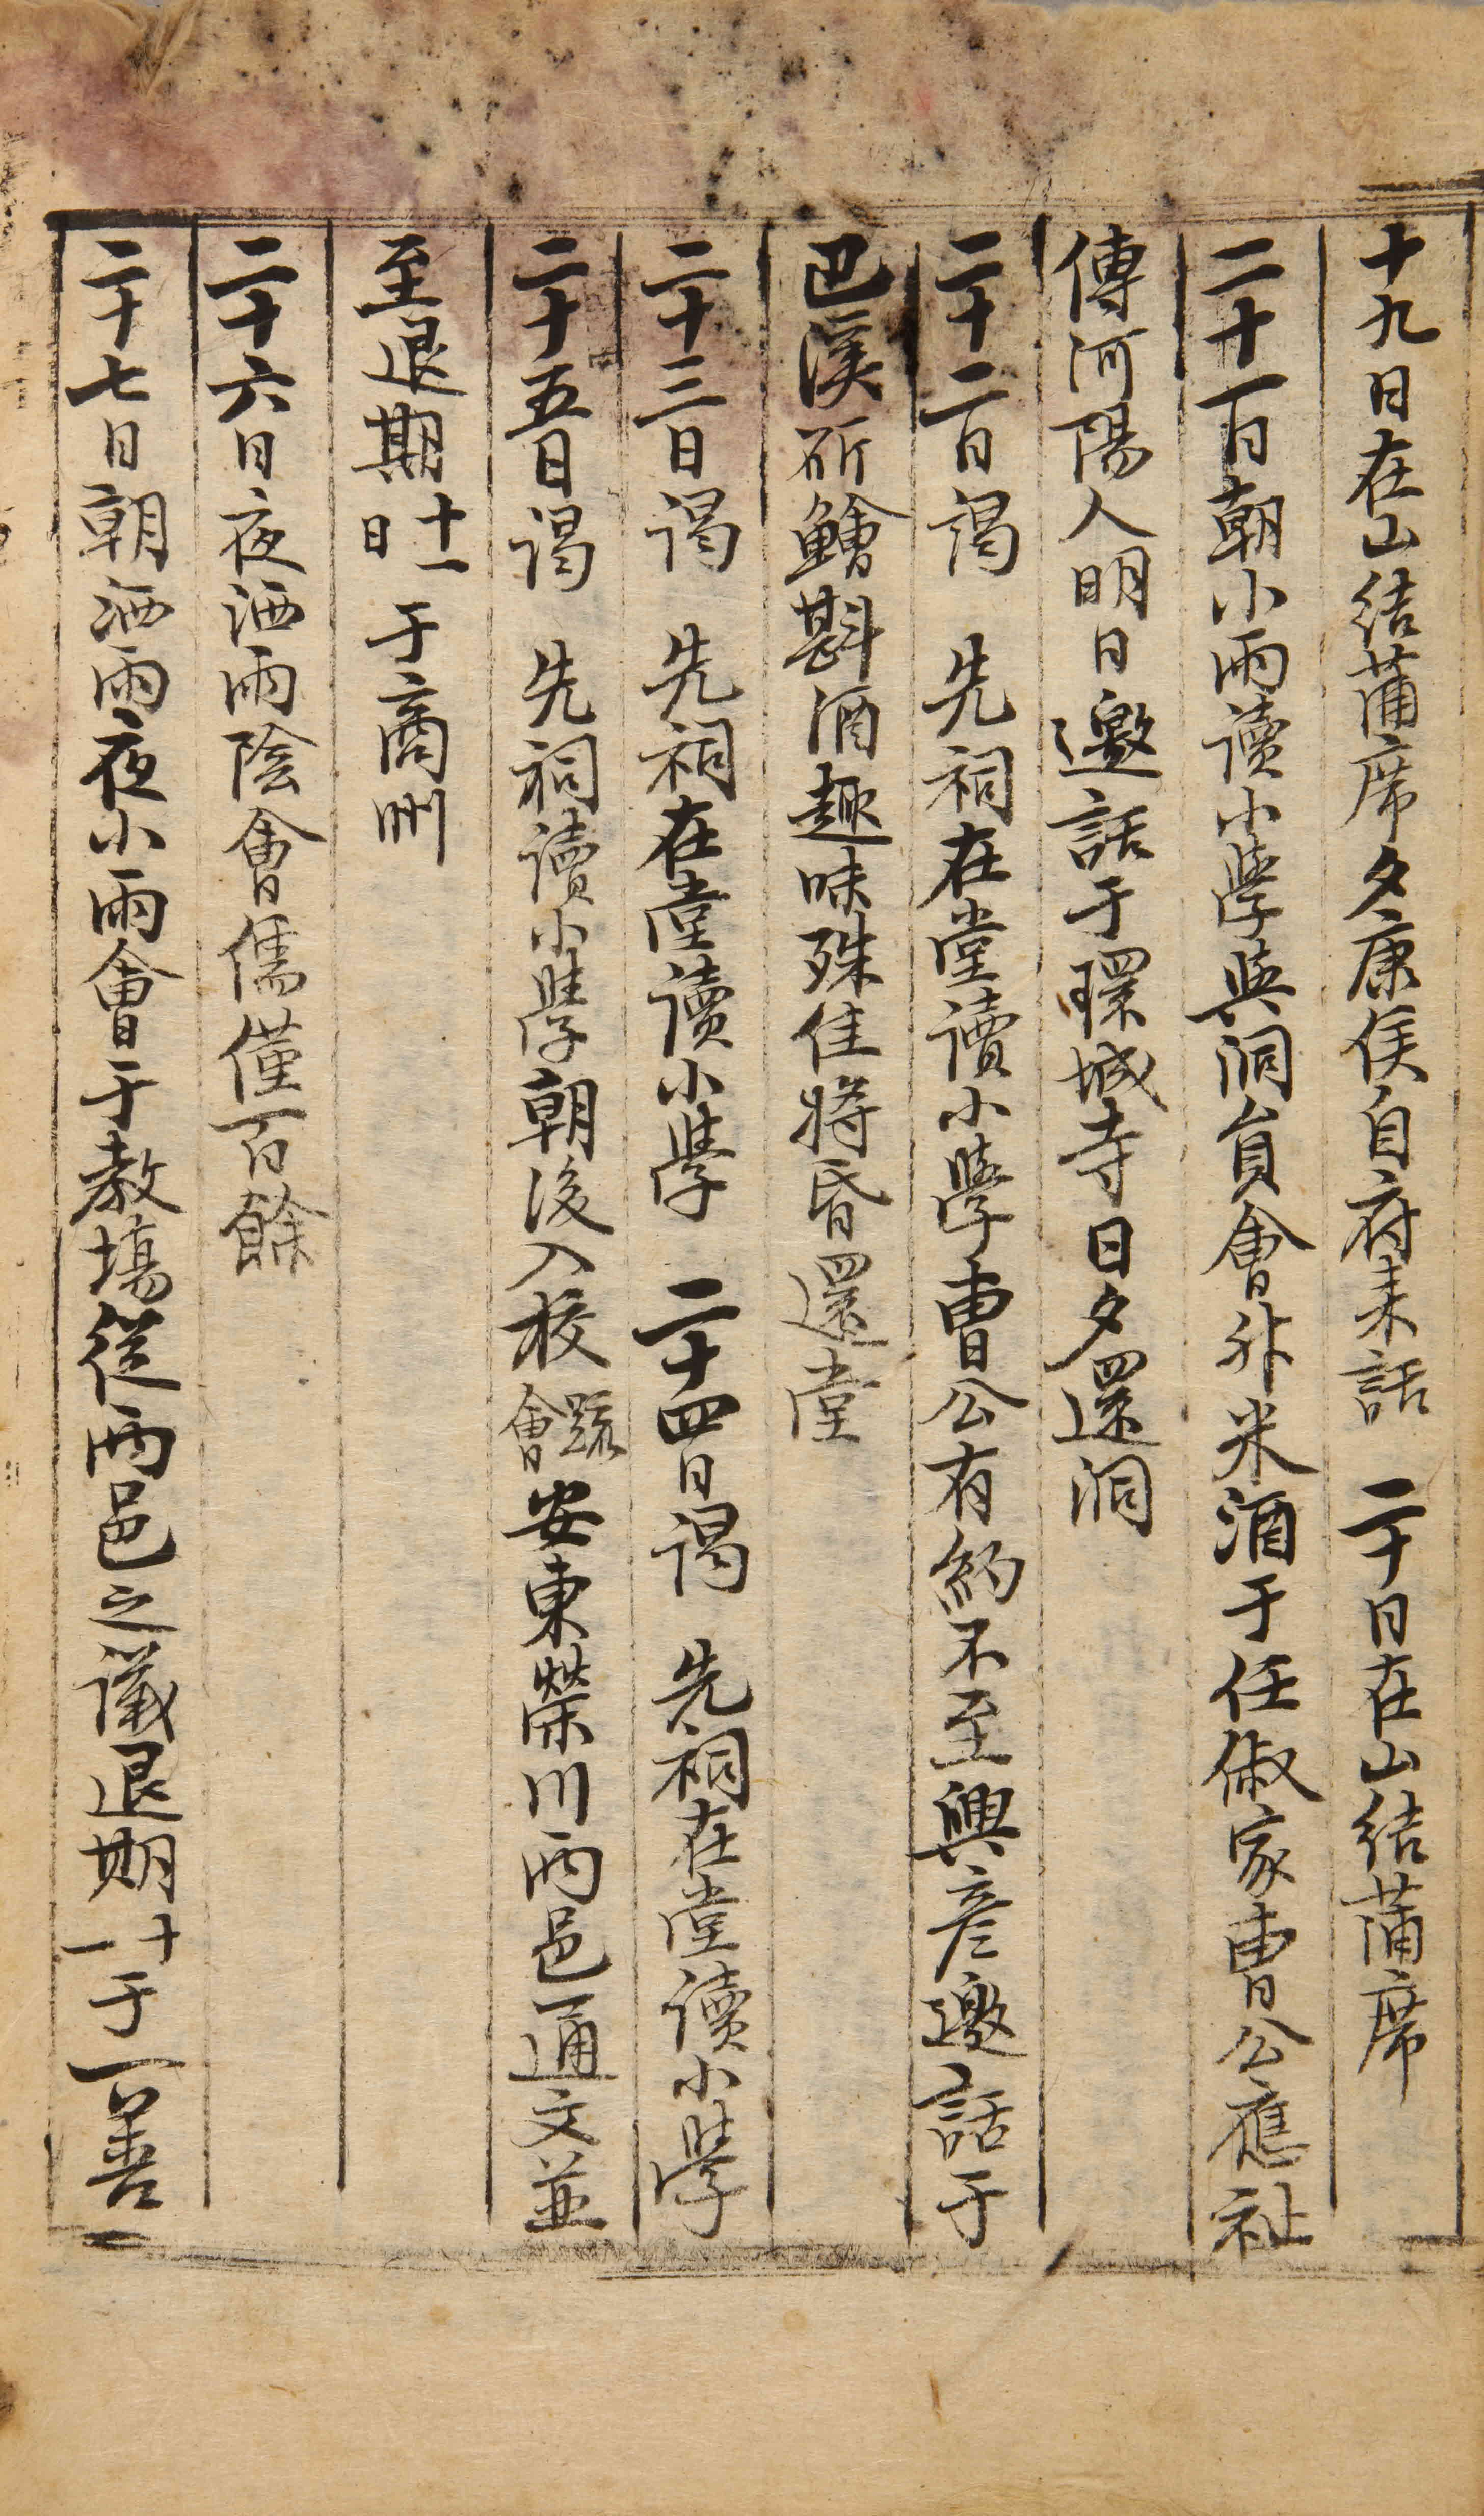 十九日在山結蒲席夕康侯自府来話　二十日在山結蒲席
二十一日朝小雨讀小學與洞員會升米酒于任俶家曺公應祉
傳河陽人明日邀話于環城寺日夕還洞
二十二日謁　先祠在堂讀小學曺公有約不至興彦邀話于
巴溪斫鱠斟酒趣味殊佳將昏還堂
二十三日謁　先祠在堂讀小學　二十四日謁　先祠在堂讀小學
二十五日謁　先祠讀小學朝後入校疏會安東榮川兩邑通文並
至退期十一日于商州
二十六日夜洒雨陰會儒僅百餘
二十七日朝洒雨夜小雨會于教場從兩邑之議退期十一于一善